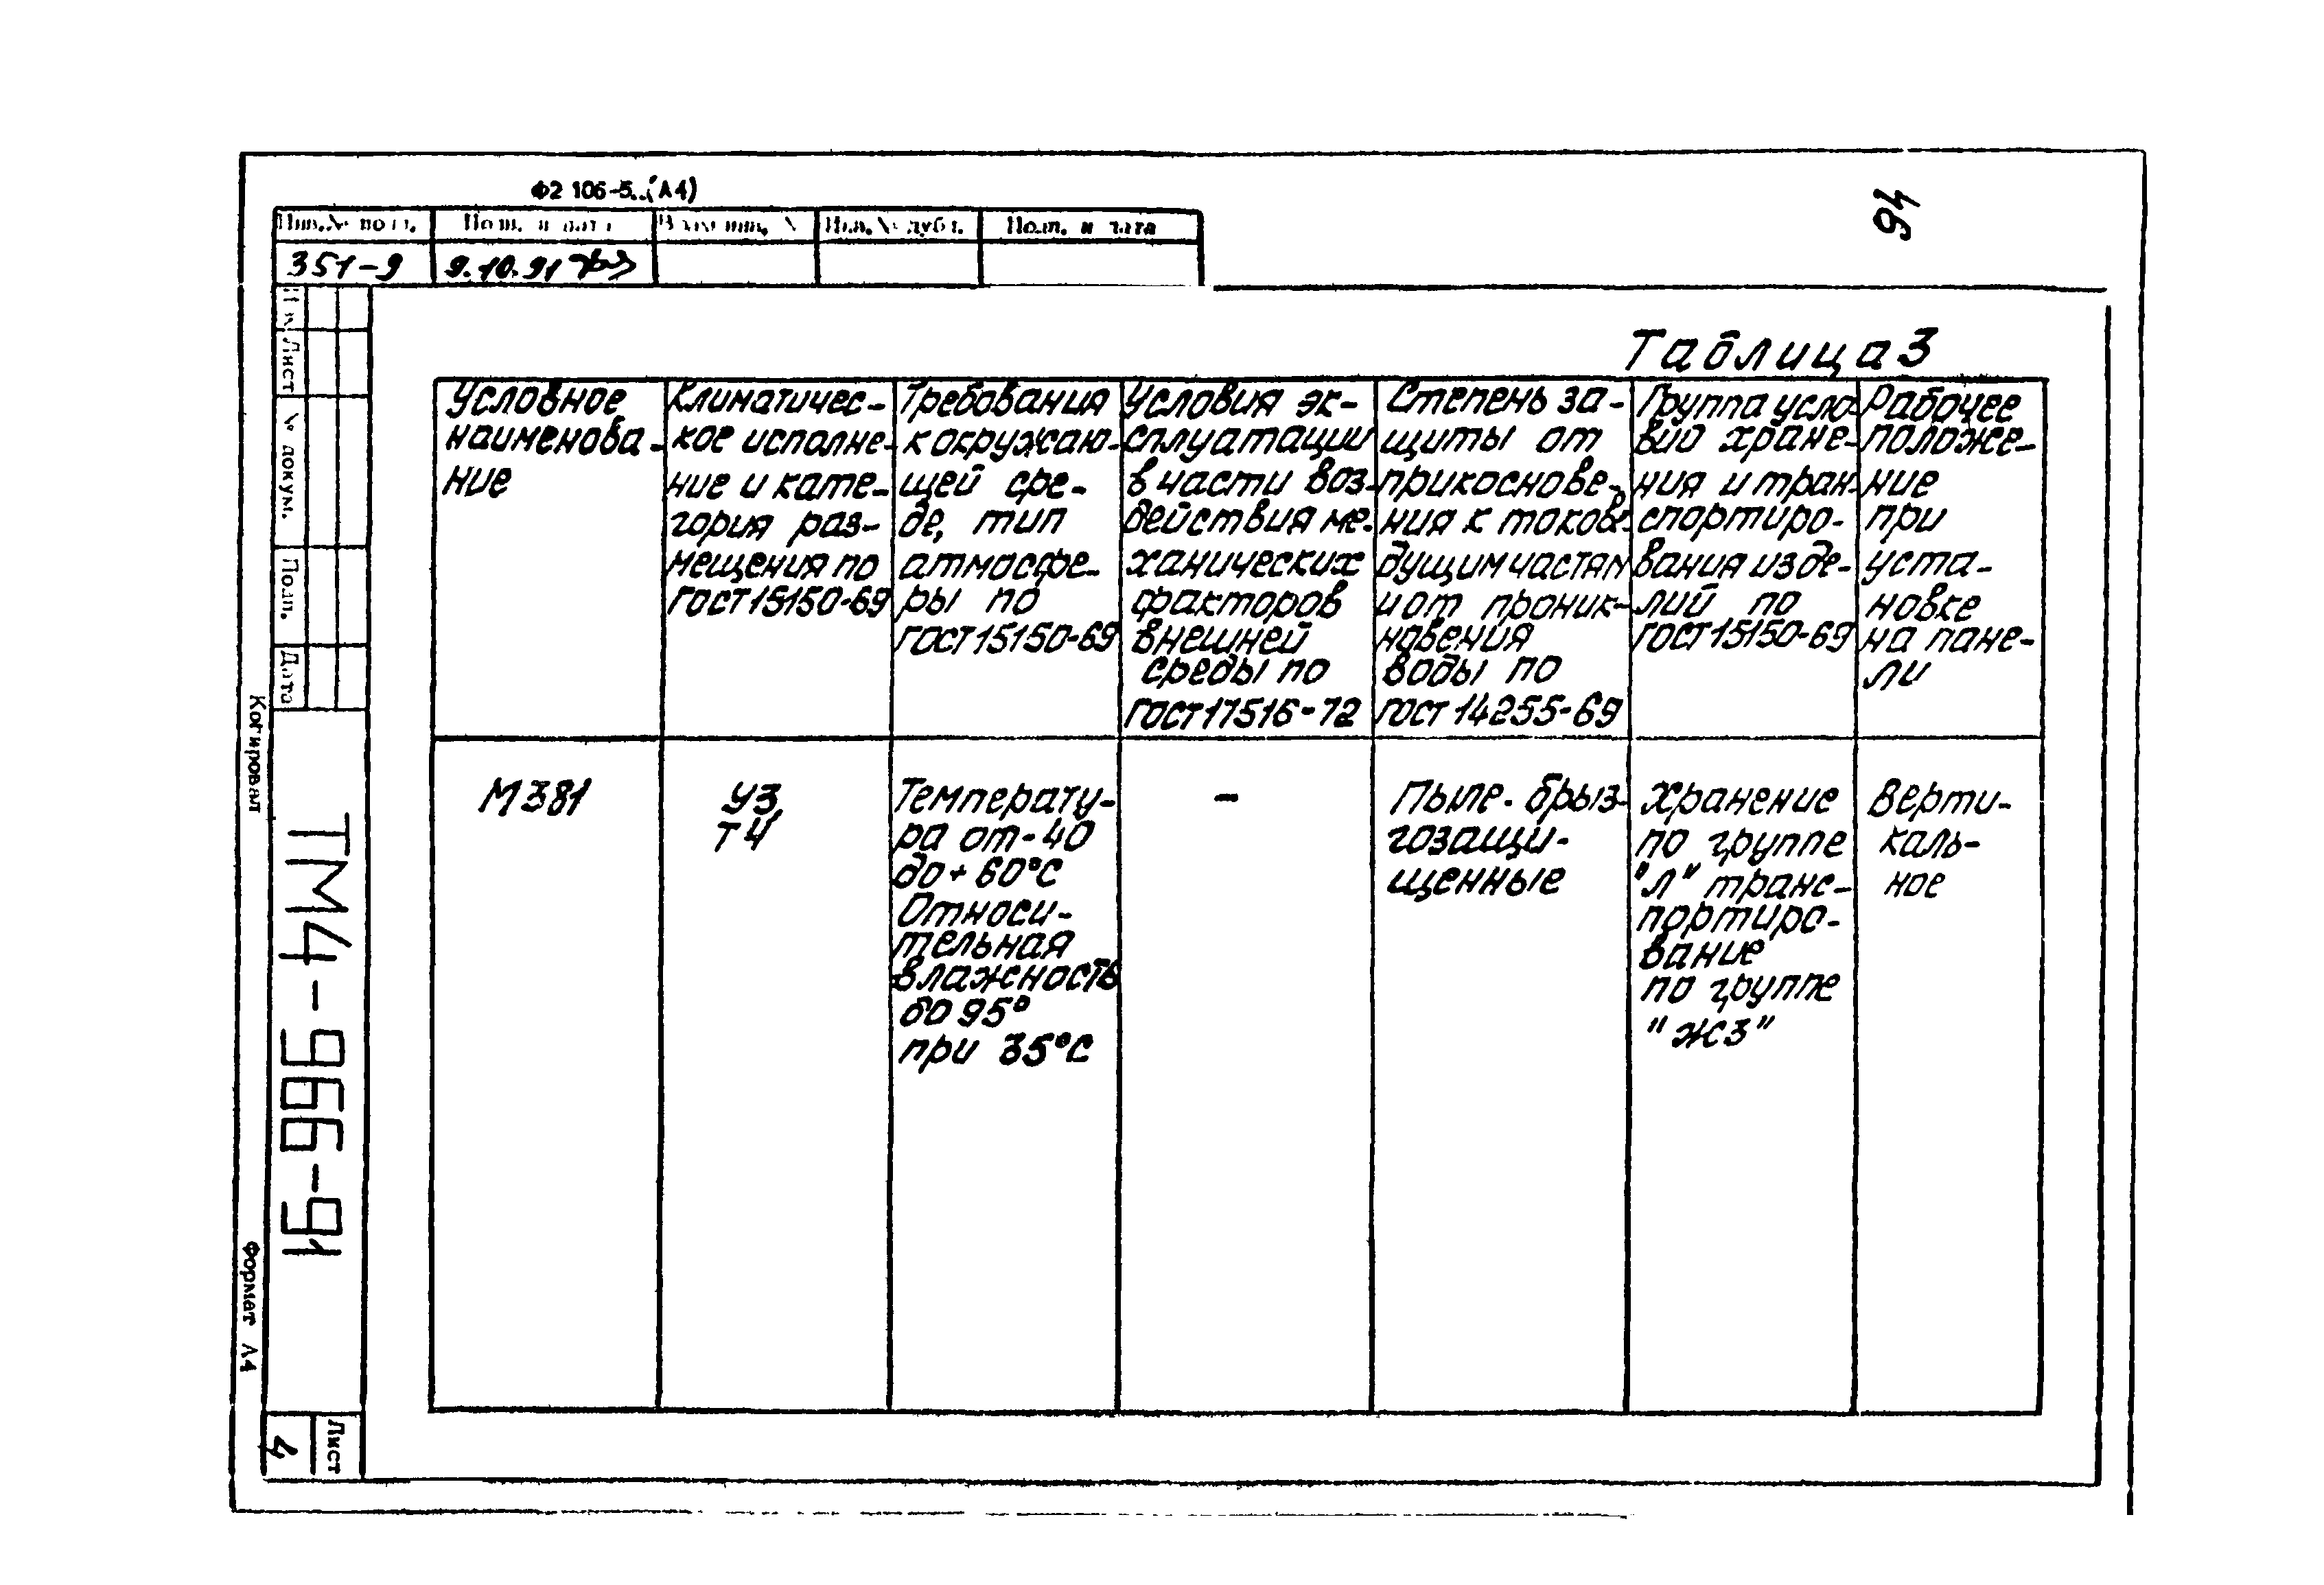 Ф2 106-5..(А4)
94
Инв.№ подл.
Подп. и дата
Взам инв. №
Инв.№ дубл.
Подп. и дата
351-9
9.10.91
Лист
№ докум.
Подп.
Дата
Копировал
ТМ4-966-91
Формат А4
Лист
4
Таблица 3
Условное
наименова-
ние
Климатичес-
кое исполне-
ние и кате-
гория раз-
мещения по
ГОСТ 15150-69
Требования
к окружаю-
щей сре-
де, тип
атмосфе-
ры по
ГОСТ 15150-69
Условия эк-
сплуатации
в части воз-
действия ме-
ханических
факторов
внешней
среды по
ГОСТ 17516-72
Степень за-
щиты от
прикоснове-
ния к токове-
дущим частям
и от проник-
новения
воды по
ГОСТ 14255-69
Группа усло-
вий хране-
ния и тран-
спортиро-
вания изде-
лий по
ГОСТ 15150-69
Рабочее
положе-
ние
при
уста-
новке
на пане-
ли
М381
У3
Т4
Температу-
ра от -40
до + 60°С
Относи-
тельная
влажность
до 95°
при 35°С
-
Пыле-брыз-
гозащи-
щенные
Хранение
по группе
"Л" транс-
портиро-
вание
по группе
"Ж3"
Верти-
каль-
ное